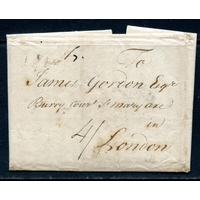 To
James Gordon Esqr
Burry Court St mary axe
in
4/ London